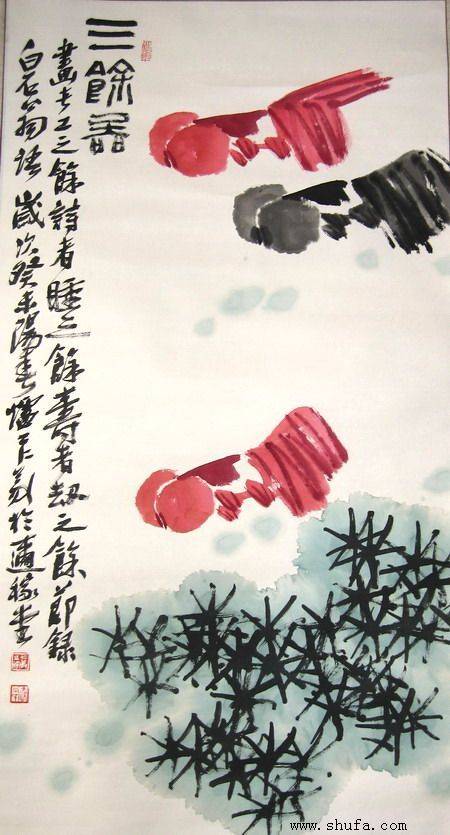 三餘啚
畫者工之餘詩者睡之餘壽者劫之餘節錄
白石翁語歲次癸未陽春於緣堂
www.shufa.com